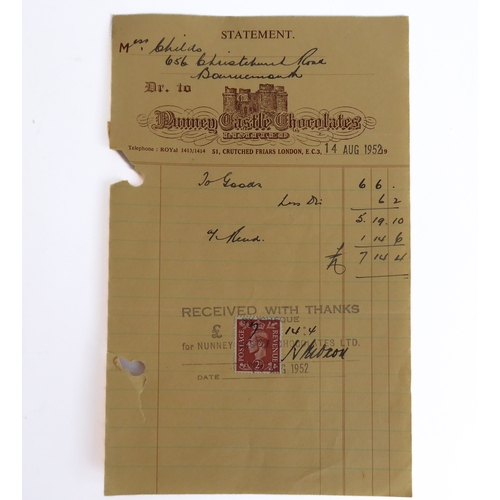 STATEMENT.
Mess Childs
656 Christchurch Road
Bournemouth
Dr. to
Nunney Castle Chocolates
LIMITED
Telephone: ROYal 1413/1414 51, CRUTCHED FRIARS LONDON, E.C.3. 14 AUG 1952 19
To Goods 6 6 .
Less Dis 6 2
5. 19. 10
1 14 6
£ 7 14 4
RECEIVED WITH THANKS
CHEQUE
£ 14.4
for NUNNEY CHOCOLATES LTD.
POSTAGE REVENUE
2D
DATE AUG 1952